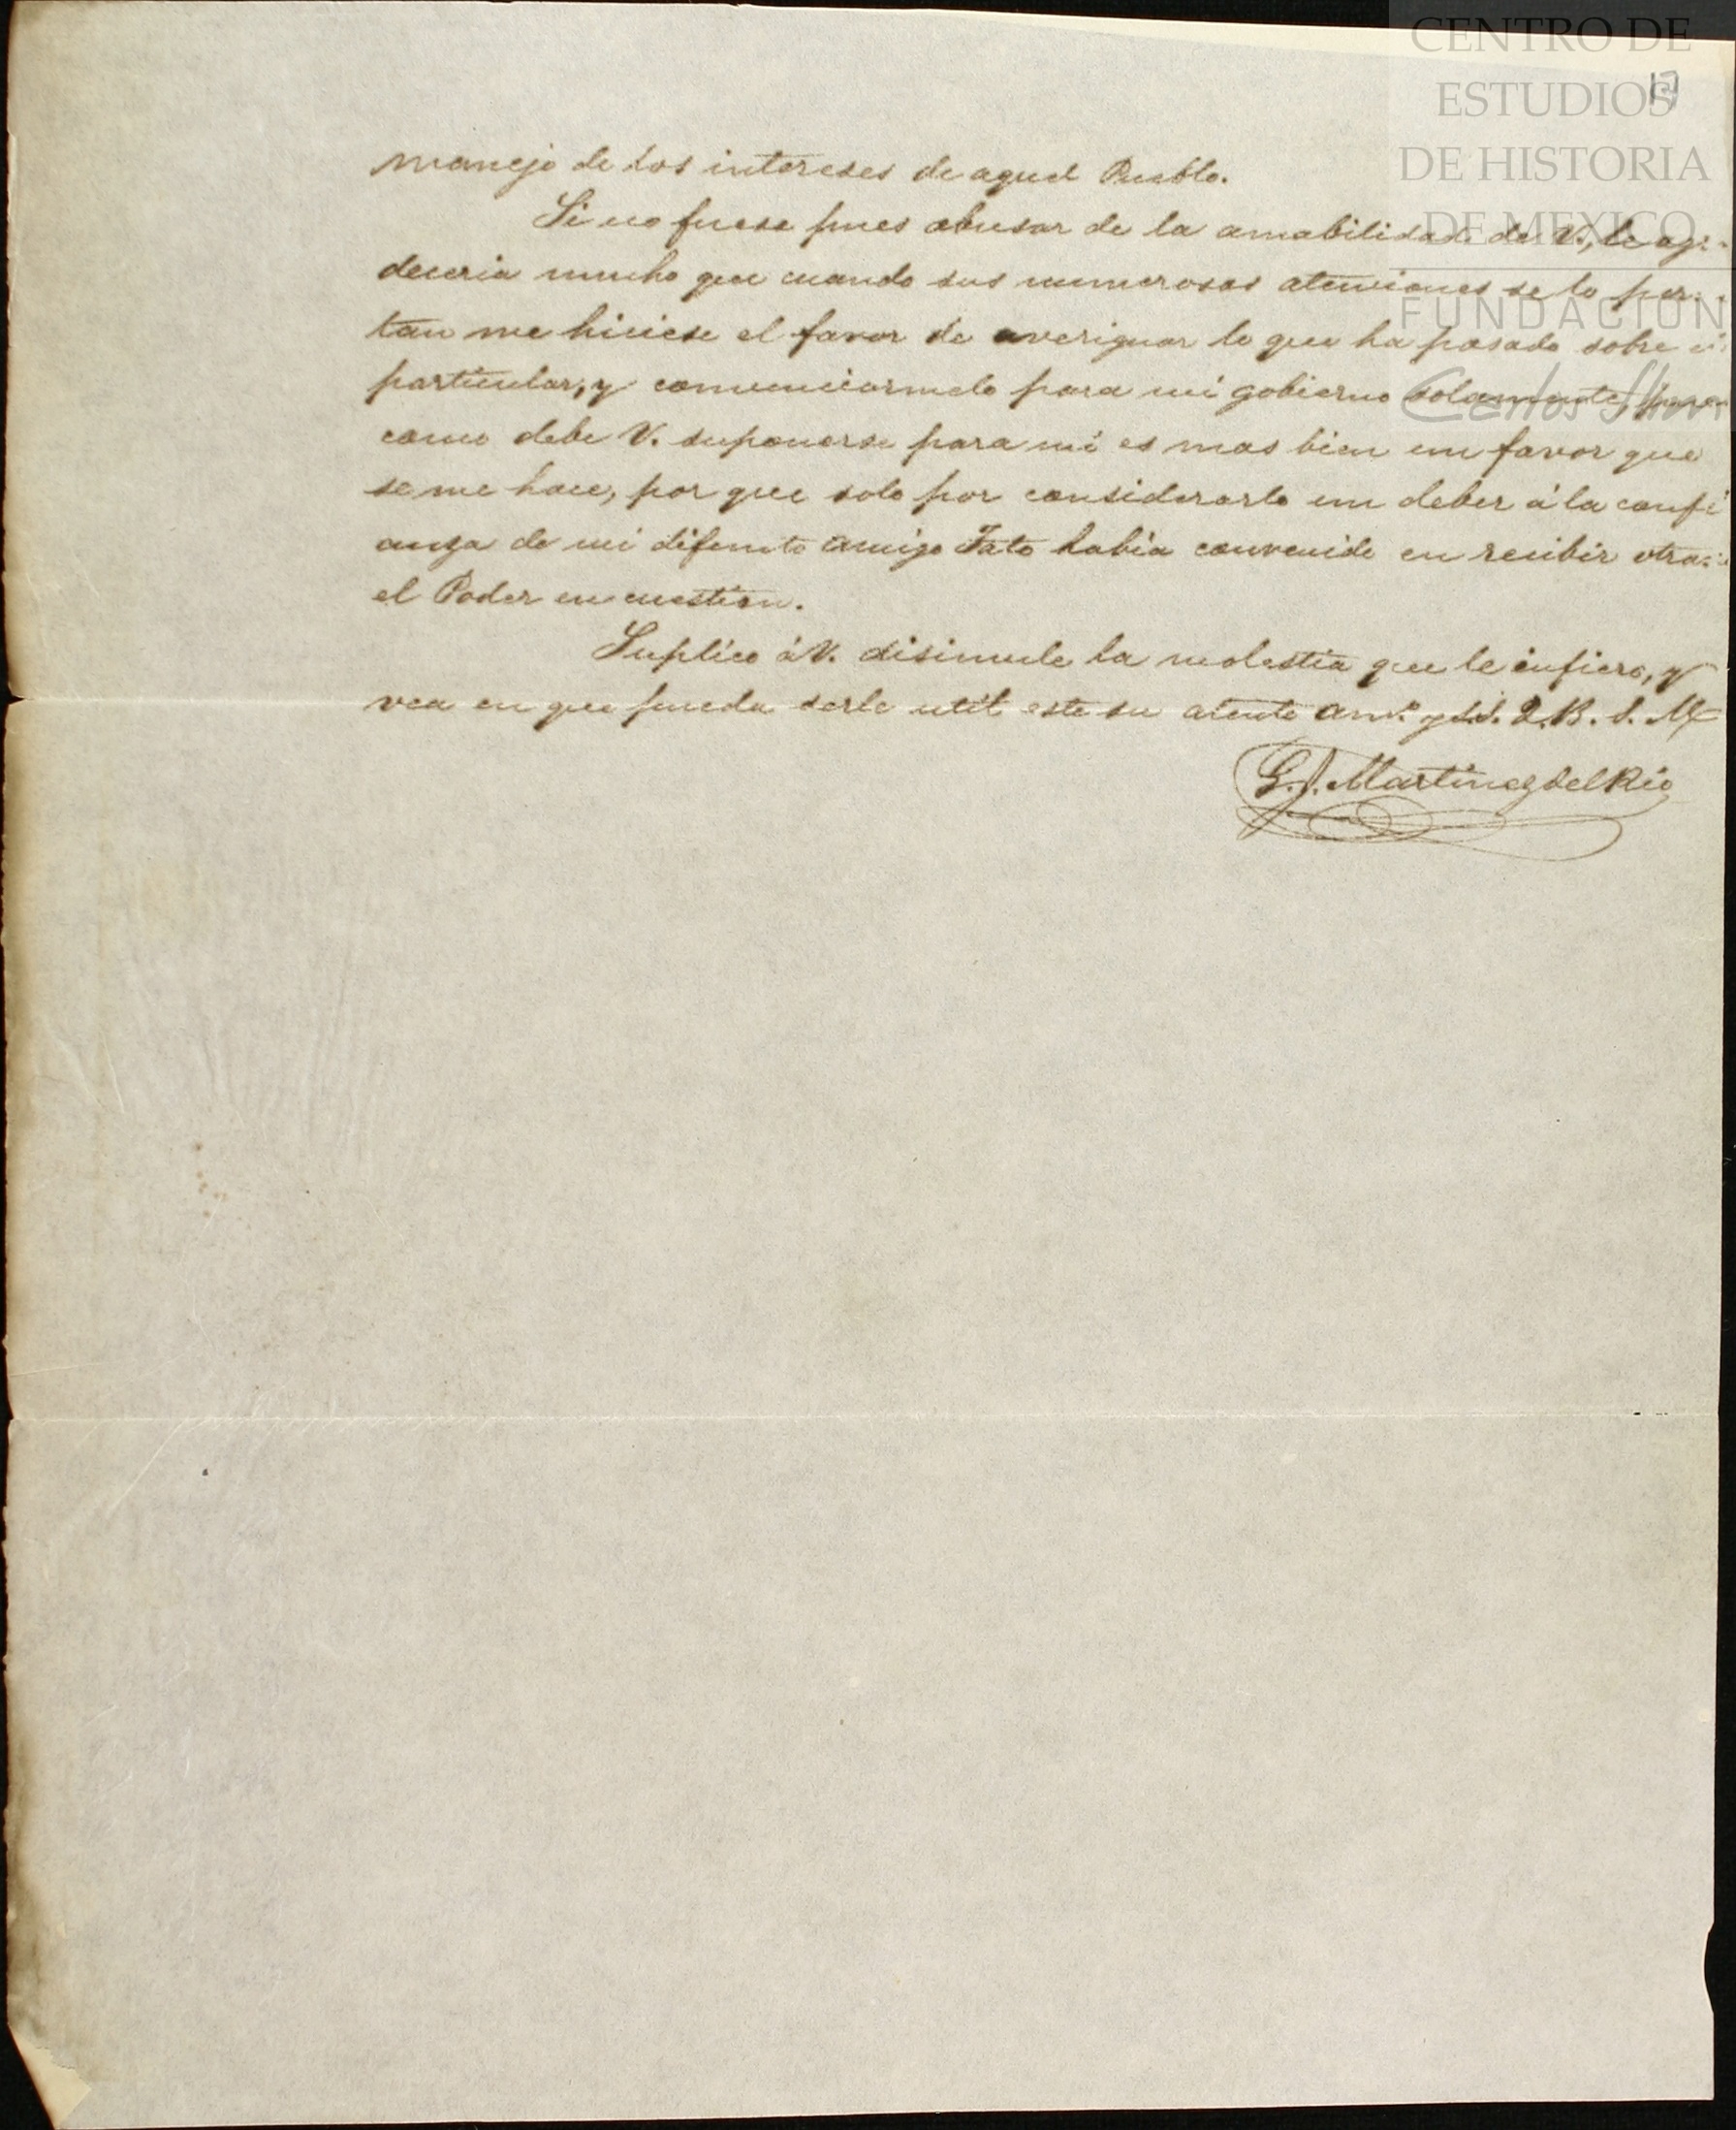 CENTRO DE
ESTUDIOS
DE HISTORIA
DE MEXICO
FUNDACIÓN
Carlos Slim
manejo de los intereses de aquel Pueblo.
Si no fuese pues abusar de la amabilidad de V., le agr
deceria mucho que cuando sus numerosas atenciones se lo per
tan me hiciese el favor de averiguar lo que ha pasado sobre el
particular, y comunicarmelo para mi gobierno solamente,
como debe V. suponerse para mi es mas bien un favor que
se me hace, por que solo por considerarlo un deber á la confi
anza de mi difunto amigo Tato habia convenido en recibir otra
el Poder en cuestion.
Suplico á V. disimule la molestia que le infiero, y
vea en que pueda serle util este su atento am.º y S.S. Q. B. S. M.
G. J. Martinez del Rio